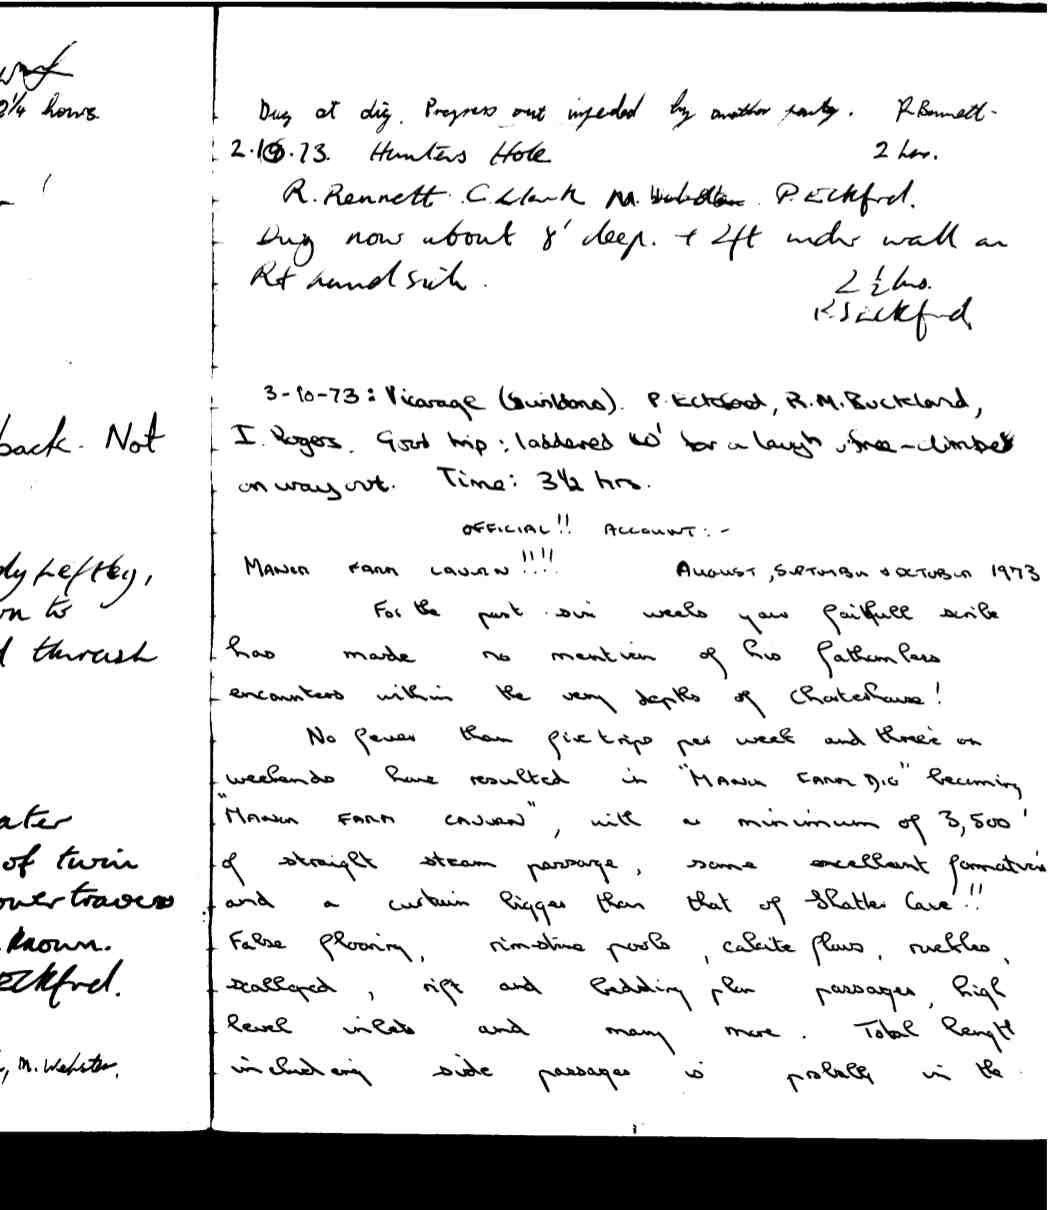 3¼ hows.
back. Not
dy Leftley,
on to
d thrash
ater
of twin
ower traverse
known.
Eckford.
, M. Webster.
Dug at dig. Progress out impeded by another party. R Bennett.
2.10.73. Hunters Hole 2 hrs.
R. Bennett. C. Clark M. Webster. P. Eckford.
Dug now about 8' deep. + 2ft under wall on
Rt hand side.
2½ hrs.
P. Eckford
3-10-73: Vicarage (Swildons). P. Eckford, R.M. Buckland,
I. Rogers. Good trip: laddered 40' for a laugh, free-climbed
on way out. Time: 3½ hrs.
OFFICIAL!! ACCOUNT:-
MANOR FARM CAVERN!!!! AUGUST, SEPTEMBER & OCTOBER 1973
For the past six weeks your faithfull scribe
has made no mention of his fathomless
encounters within the very depths of Charterhouse!
No fewer than five trips per week and three on
weekends have resulted in "MANOR FARM DIG" becoming
"MANOR FARM CAVERN", with a minimum of 3,500'
of straight steam passage, some excellant formations
and a curtain bigger than that of Shatter Cave!!
False flooring, rimstone pools, calcite flows, ruckles,
scalloped, rift and bedding plan passages, high
level inlets and many more. Total length
including side passages is probally in the